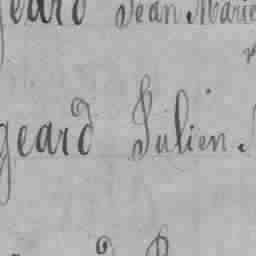 geard Jean Marie
geard Julien